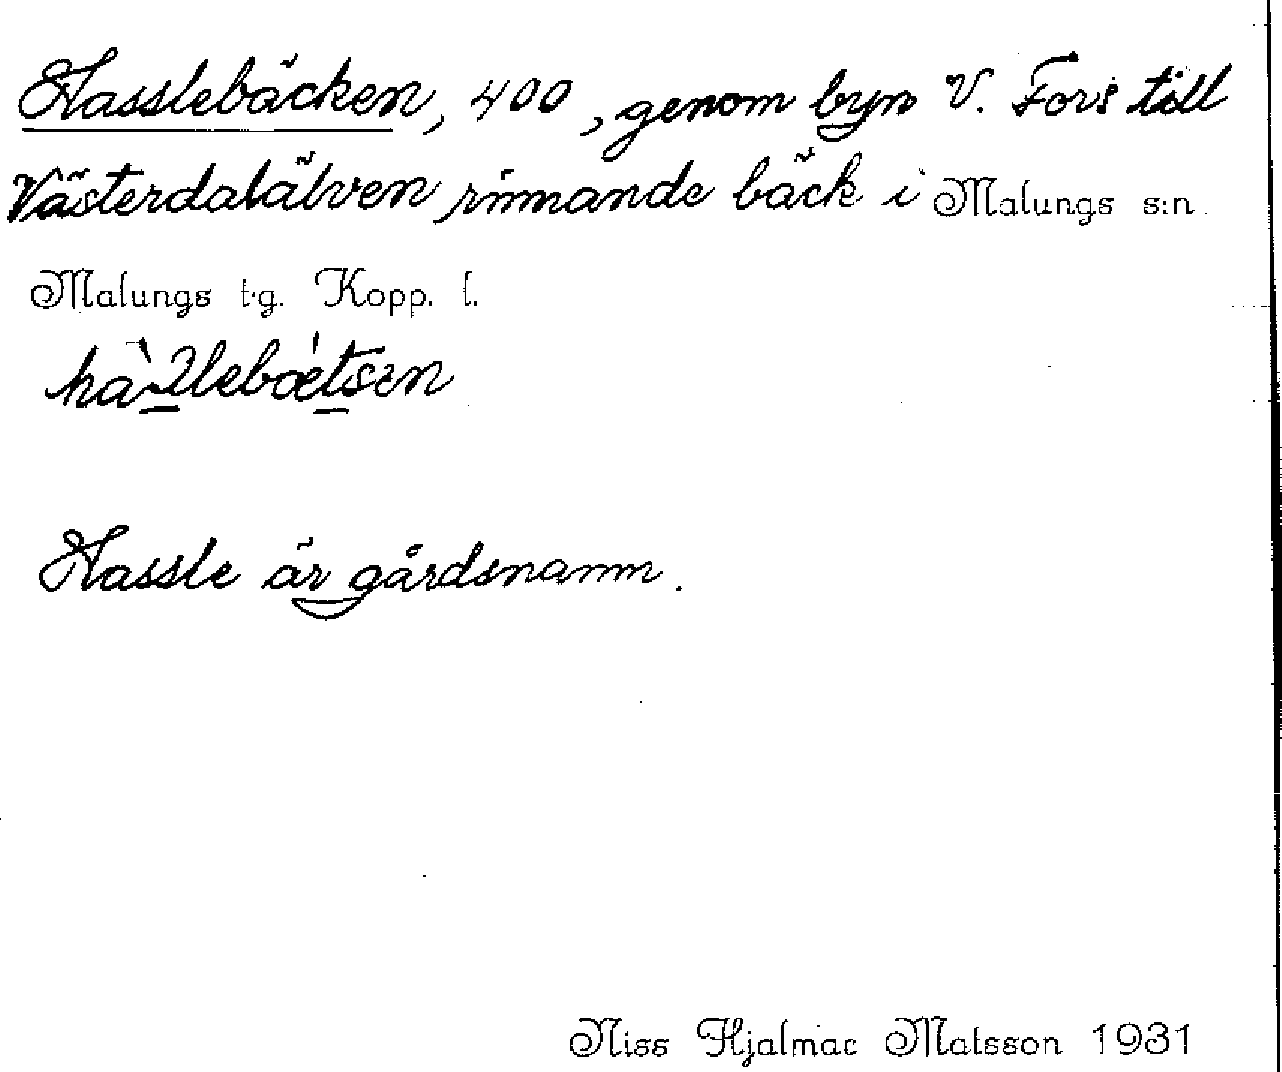 Hasslebäcken, 400, genom byn V. Fors till
Västerdalälven rinnande bäck i Malungs s:n
Malungs t.g. Kopp. l.
Hassle är gårdsnamn.
Niss Hjalmar Matsson 1931